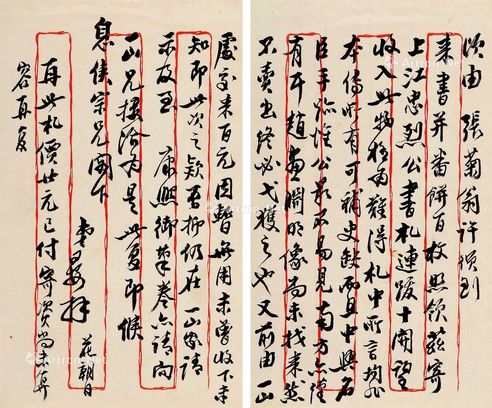 頃由 張菊翁許領到
來書并番餅百枚照領茲寄
上江忠烈公書札連跋十開望
收入此物極為難得札中所言均
本傳所有可補史缺而且中興名
臣手跡惟公最不易見南方亦僅
有耳趙畫淵明像尚未找來然
不賣出終必弋獲之也又前由一山
處交來百元因暫無用未曾收下未
知即此次之款否抑仍在一山處請
示及至 康熙御筆卷亦請向
一山兄接洽為是此复即候
息侯宗兄閣下
拜 花朝日
再此札價廿元已付寄資尚未算
容再复